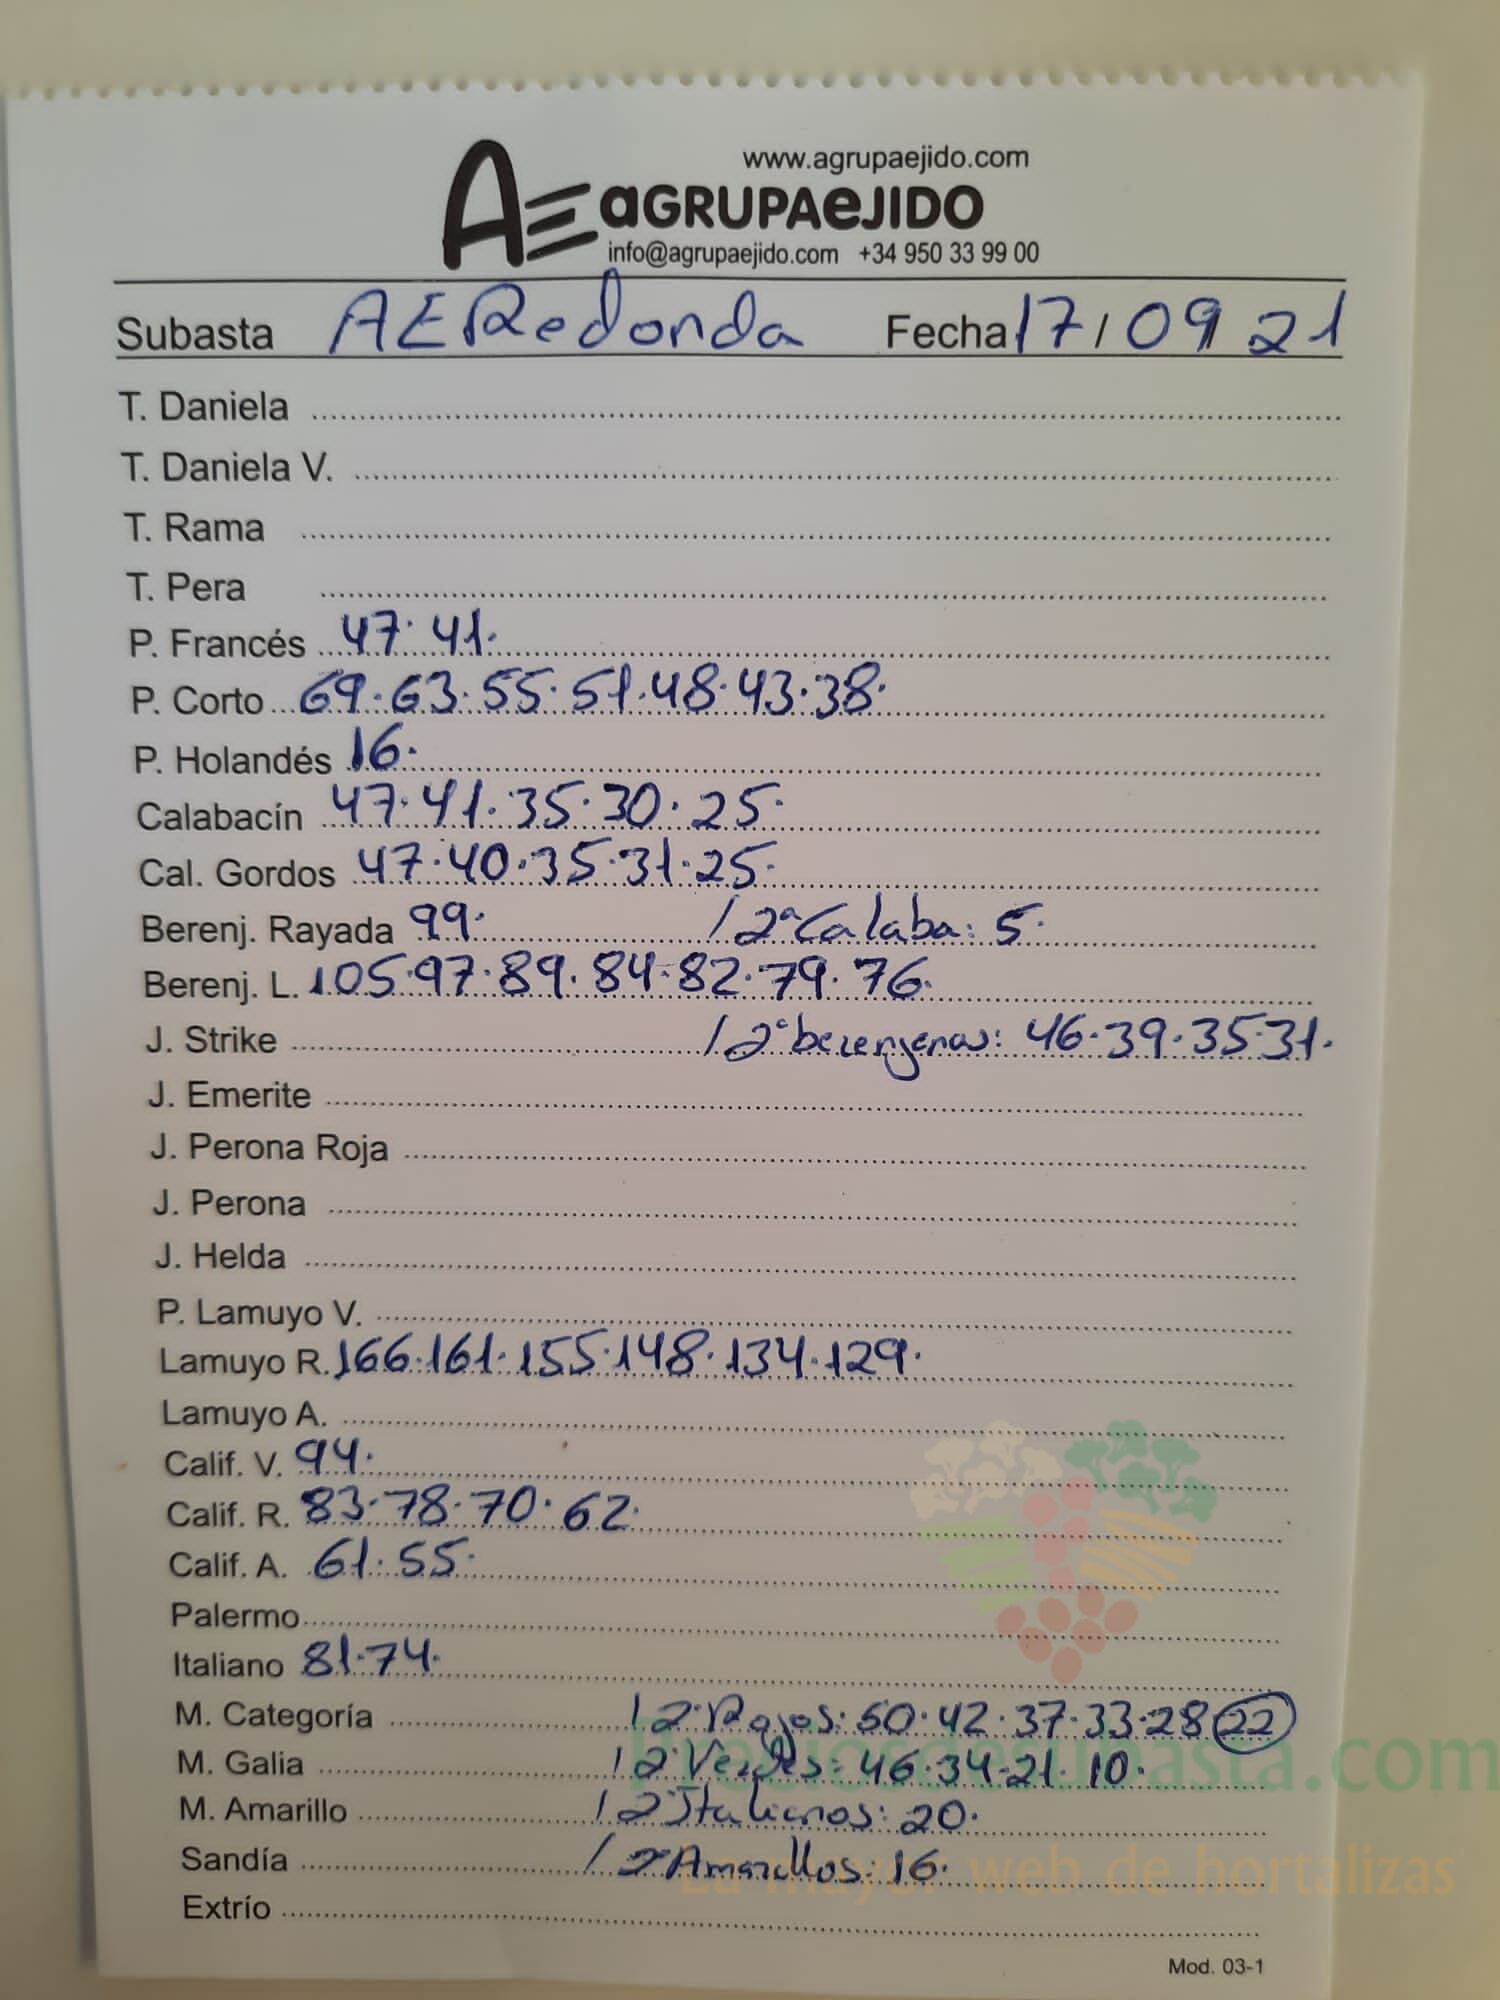 www.agrupaejido.com
AE AGRUPAEJIDO
info@agrupaejido.com +34 950 33 99 00
Subasta AE Redonda Fecha 17/09 21
T. Daniela
T. Daniela V.
T. Rama
T. Pera
P. Francés 47· 41·
P. Corto 69·63·55·51·48·43·38·
P. Holandés 16·
Calabacín 47·41·35·30·25·
Cal. Gordos 47·40·35·31·25·
Berenj. Rayada 99· / 2ª Calaba: 5·
Berenj. L. 105·97·89·84·82·79·76·
J. Strike / 2ª berenjenas: 46·39·35·31·
J. Emerite
J. Perona Roja
J. Perona
J. Helda
P. Lamuyo V.
Lamuyo R. 166·161·155·148·134·129·
Lamuyo A.
Calif. V. 94·
Calif. R. 83·78·70·62·
Calif. A. 61·55·
Palermo
Italiano 81·74·
M. Categoría / 2ª Rojos: 50·42·37·33·28 22
M. Galia / 2ª Verdes: 46·34·21·10·
Preciosdesubasta.com
M. Amarillo / 2ª Italianos: 20·
Sandía / 2ª Amarillos: 16·
La mayor web de hortalizas
Extrío
Mod. 03-1